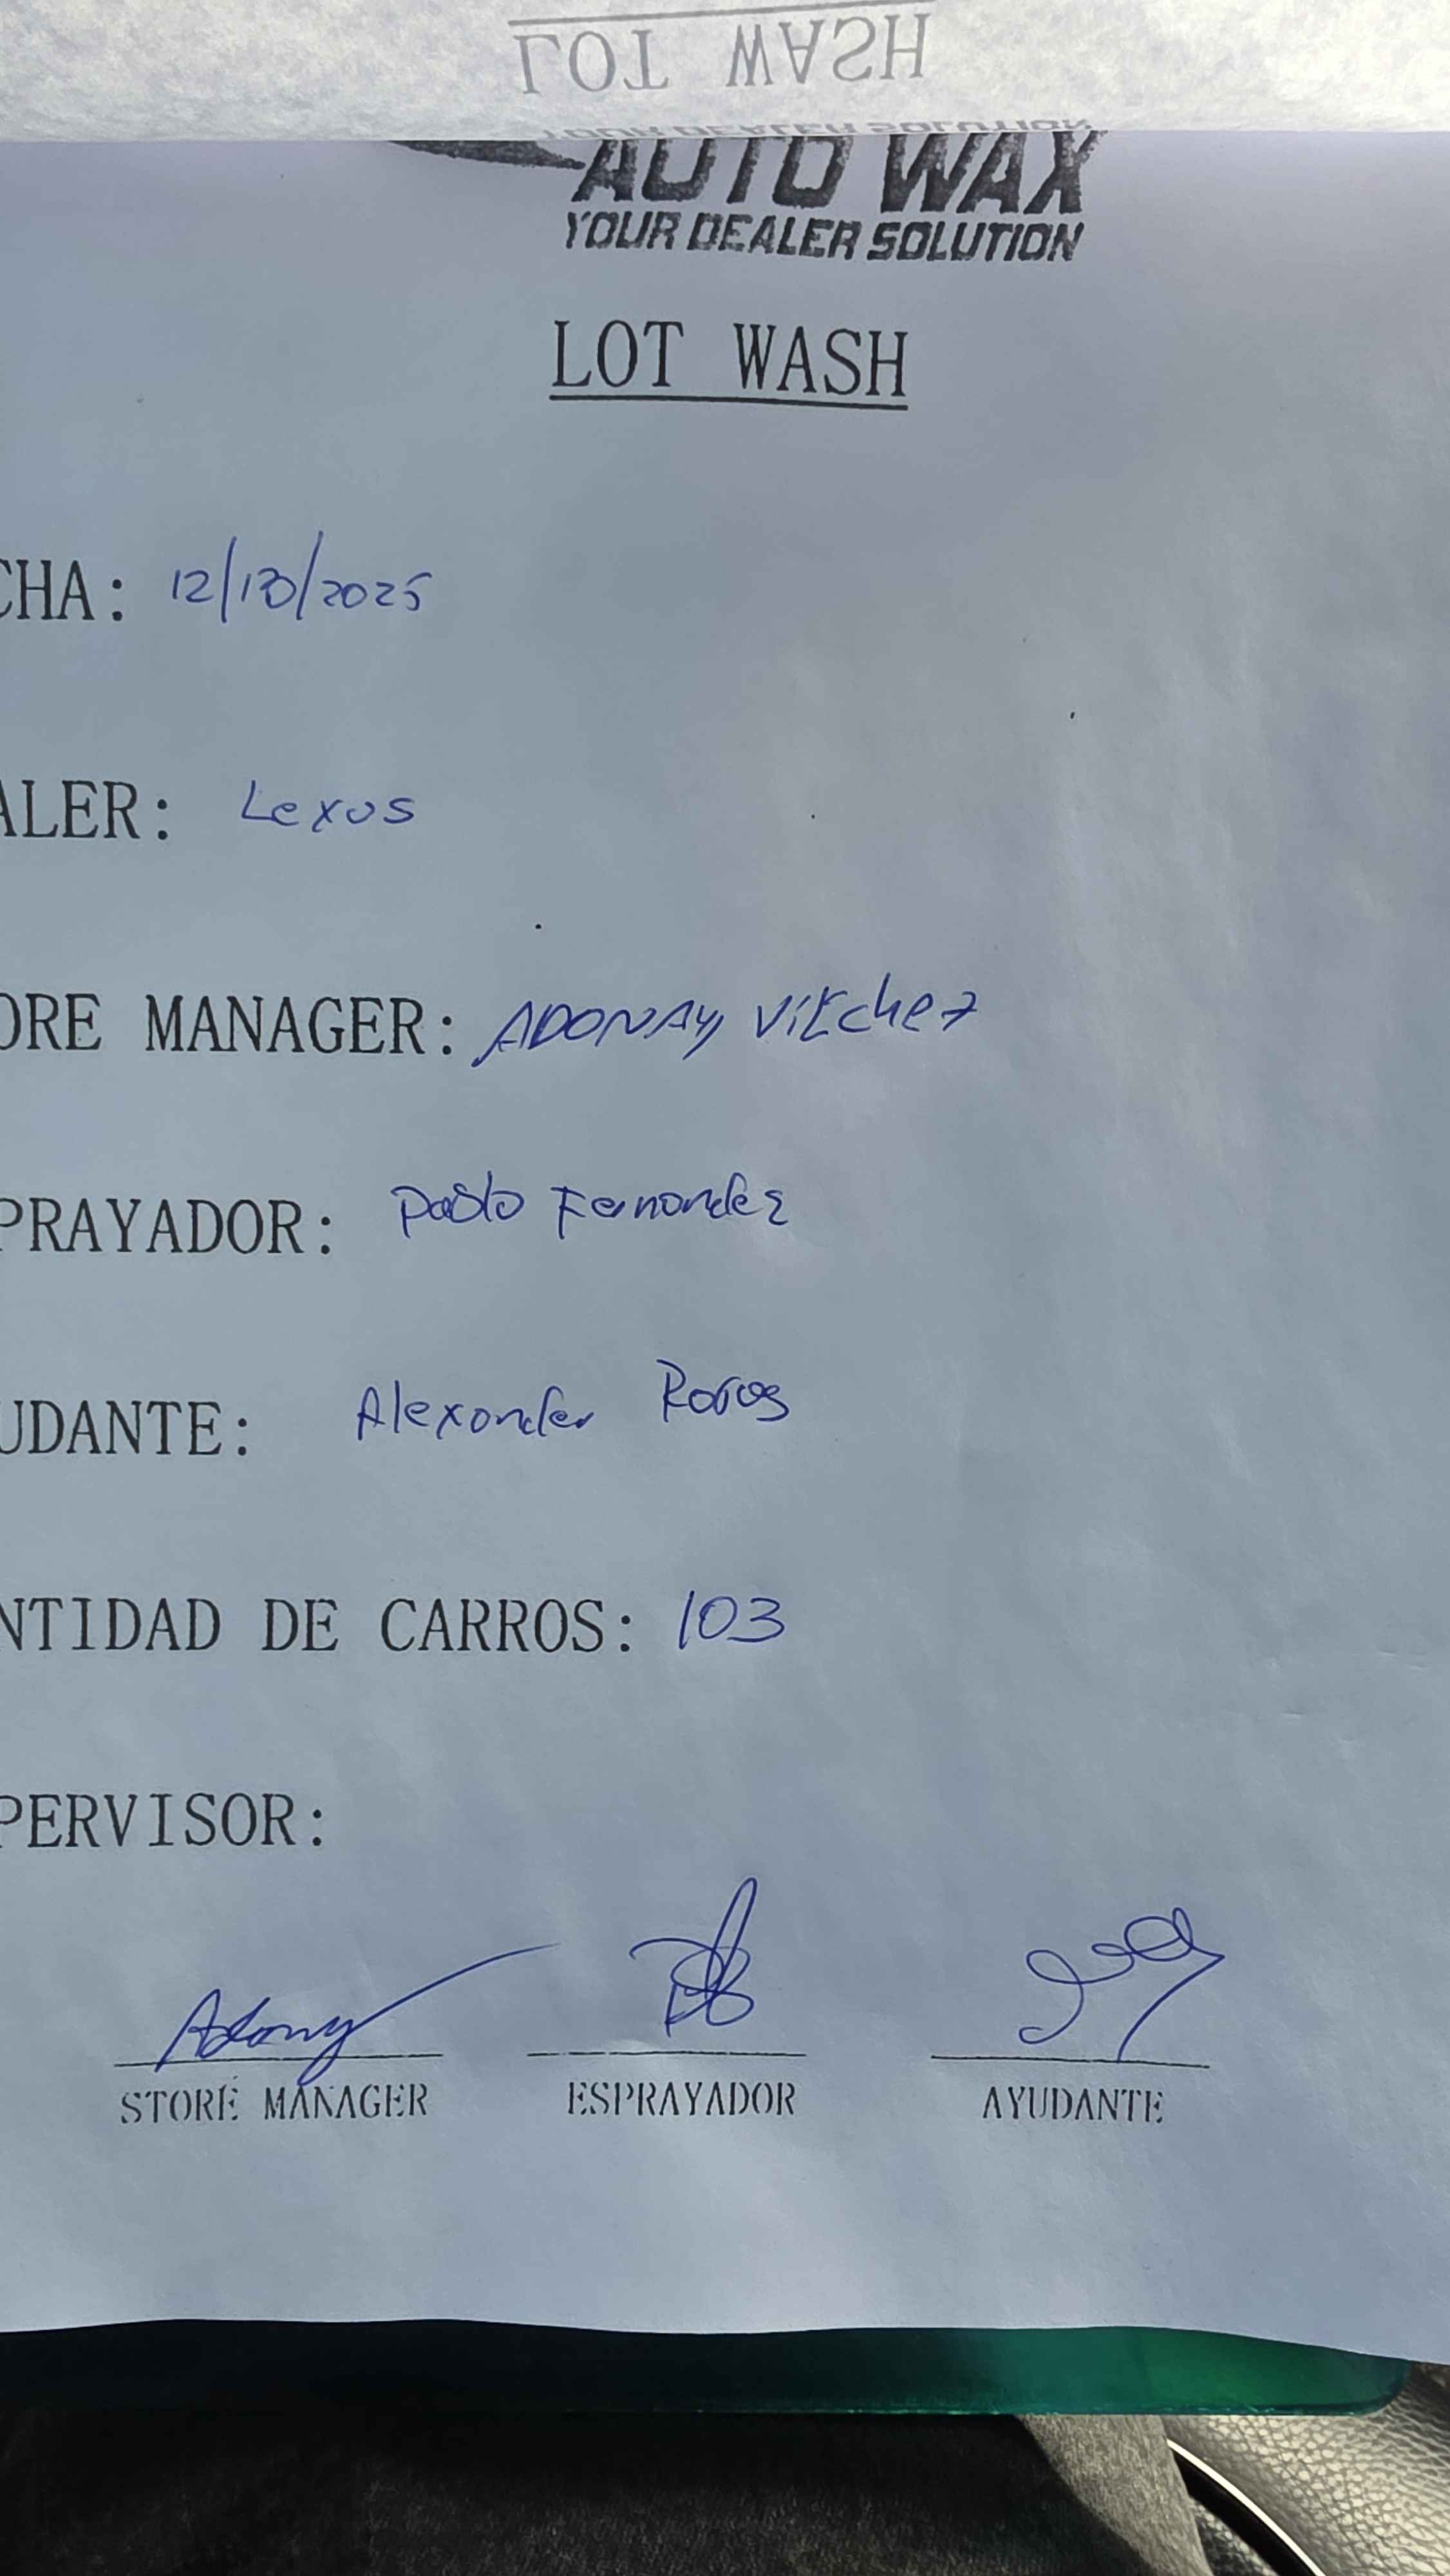 LOT WASH
YOUR DEALER SOLUTION
AUTO WAX
YOUR DEALER SOLUTION
LOT WASH
CHA: 12/13/2025
ALER: Lexus
ORE MANAGER: ADONAY Vilchez
PRAYADOR: Pablo Fernandez
UDANTE: Alexander
NTIDAD DE CARROS: 103
PERVISOR:
Adony
STORE MANAGER ESPRAYADOR AYUDANTE